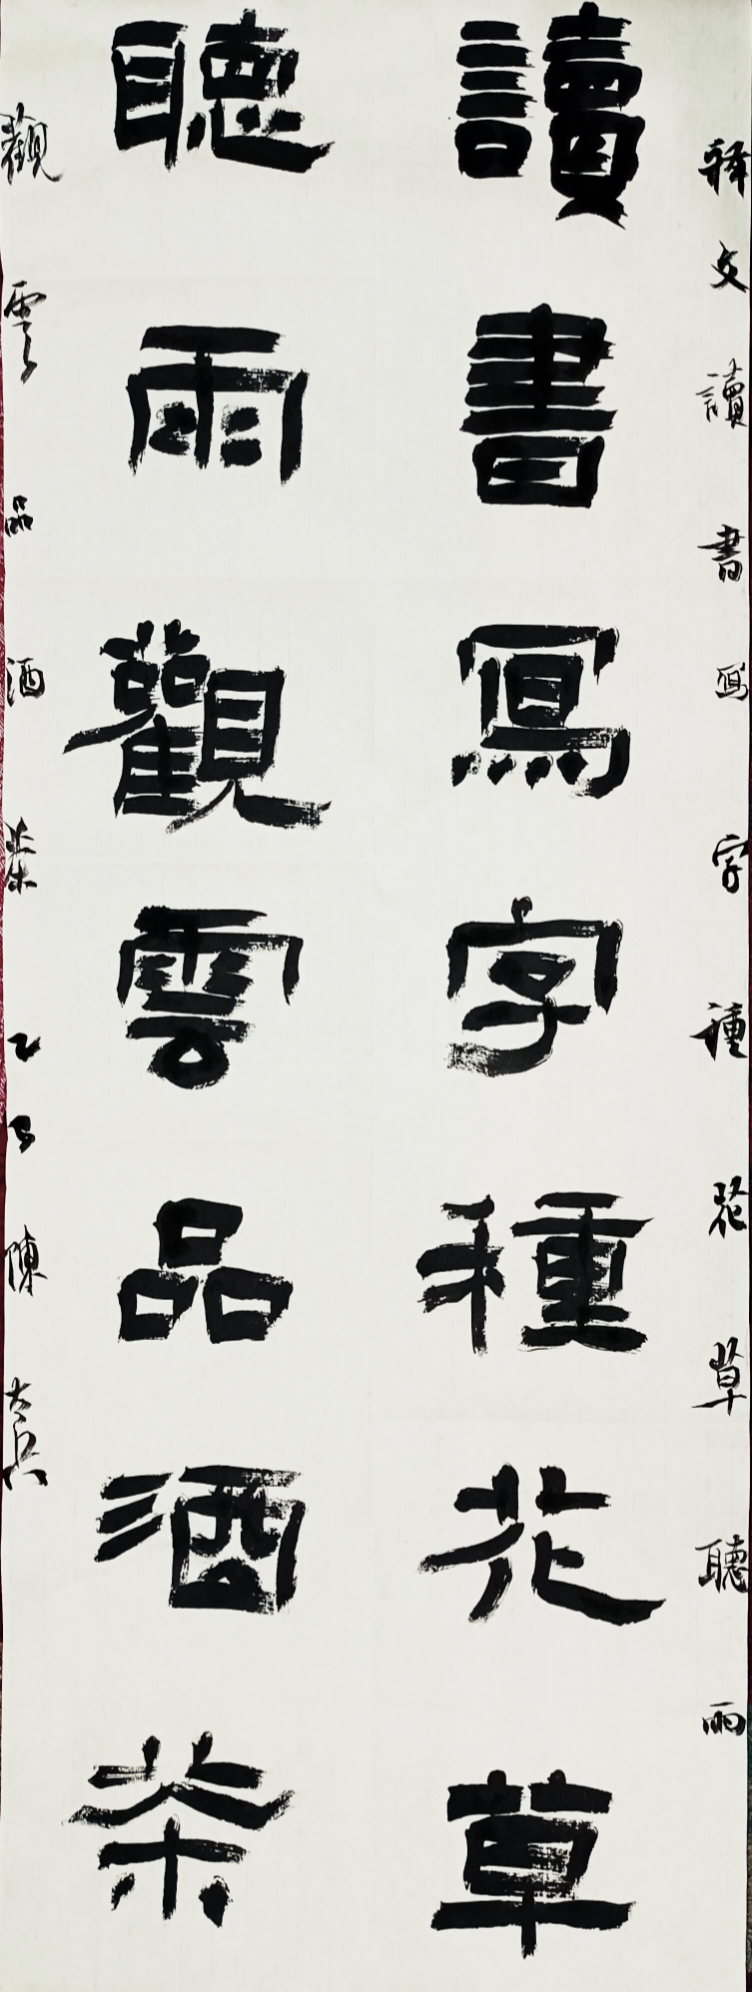 釋文讀書寫字種花草聽雨
讀書寫字種花草
聽雨觀雲品酒茶
觀雲品酒茶乙巳陳大兵